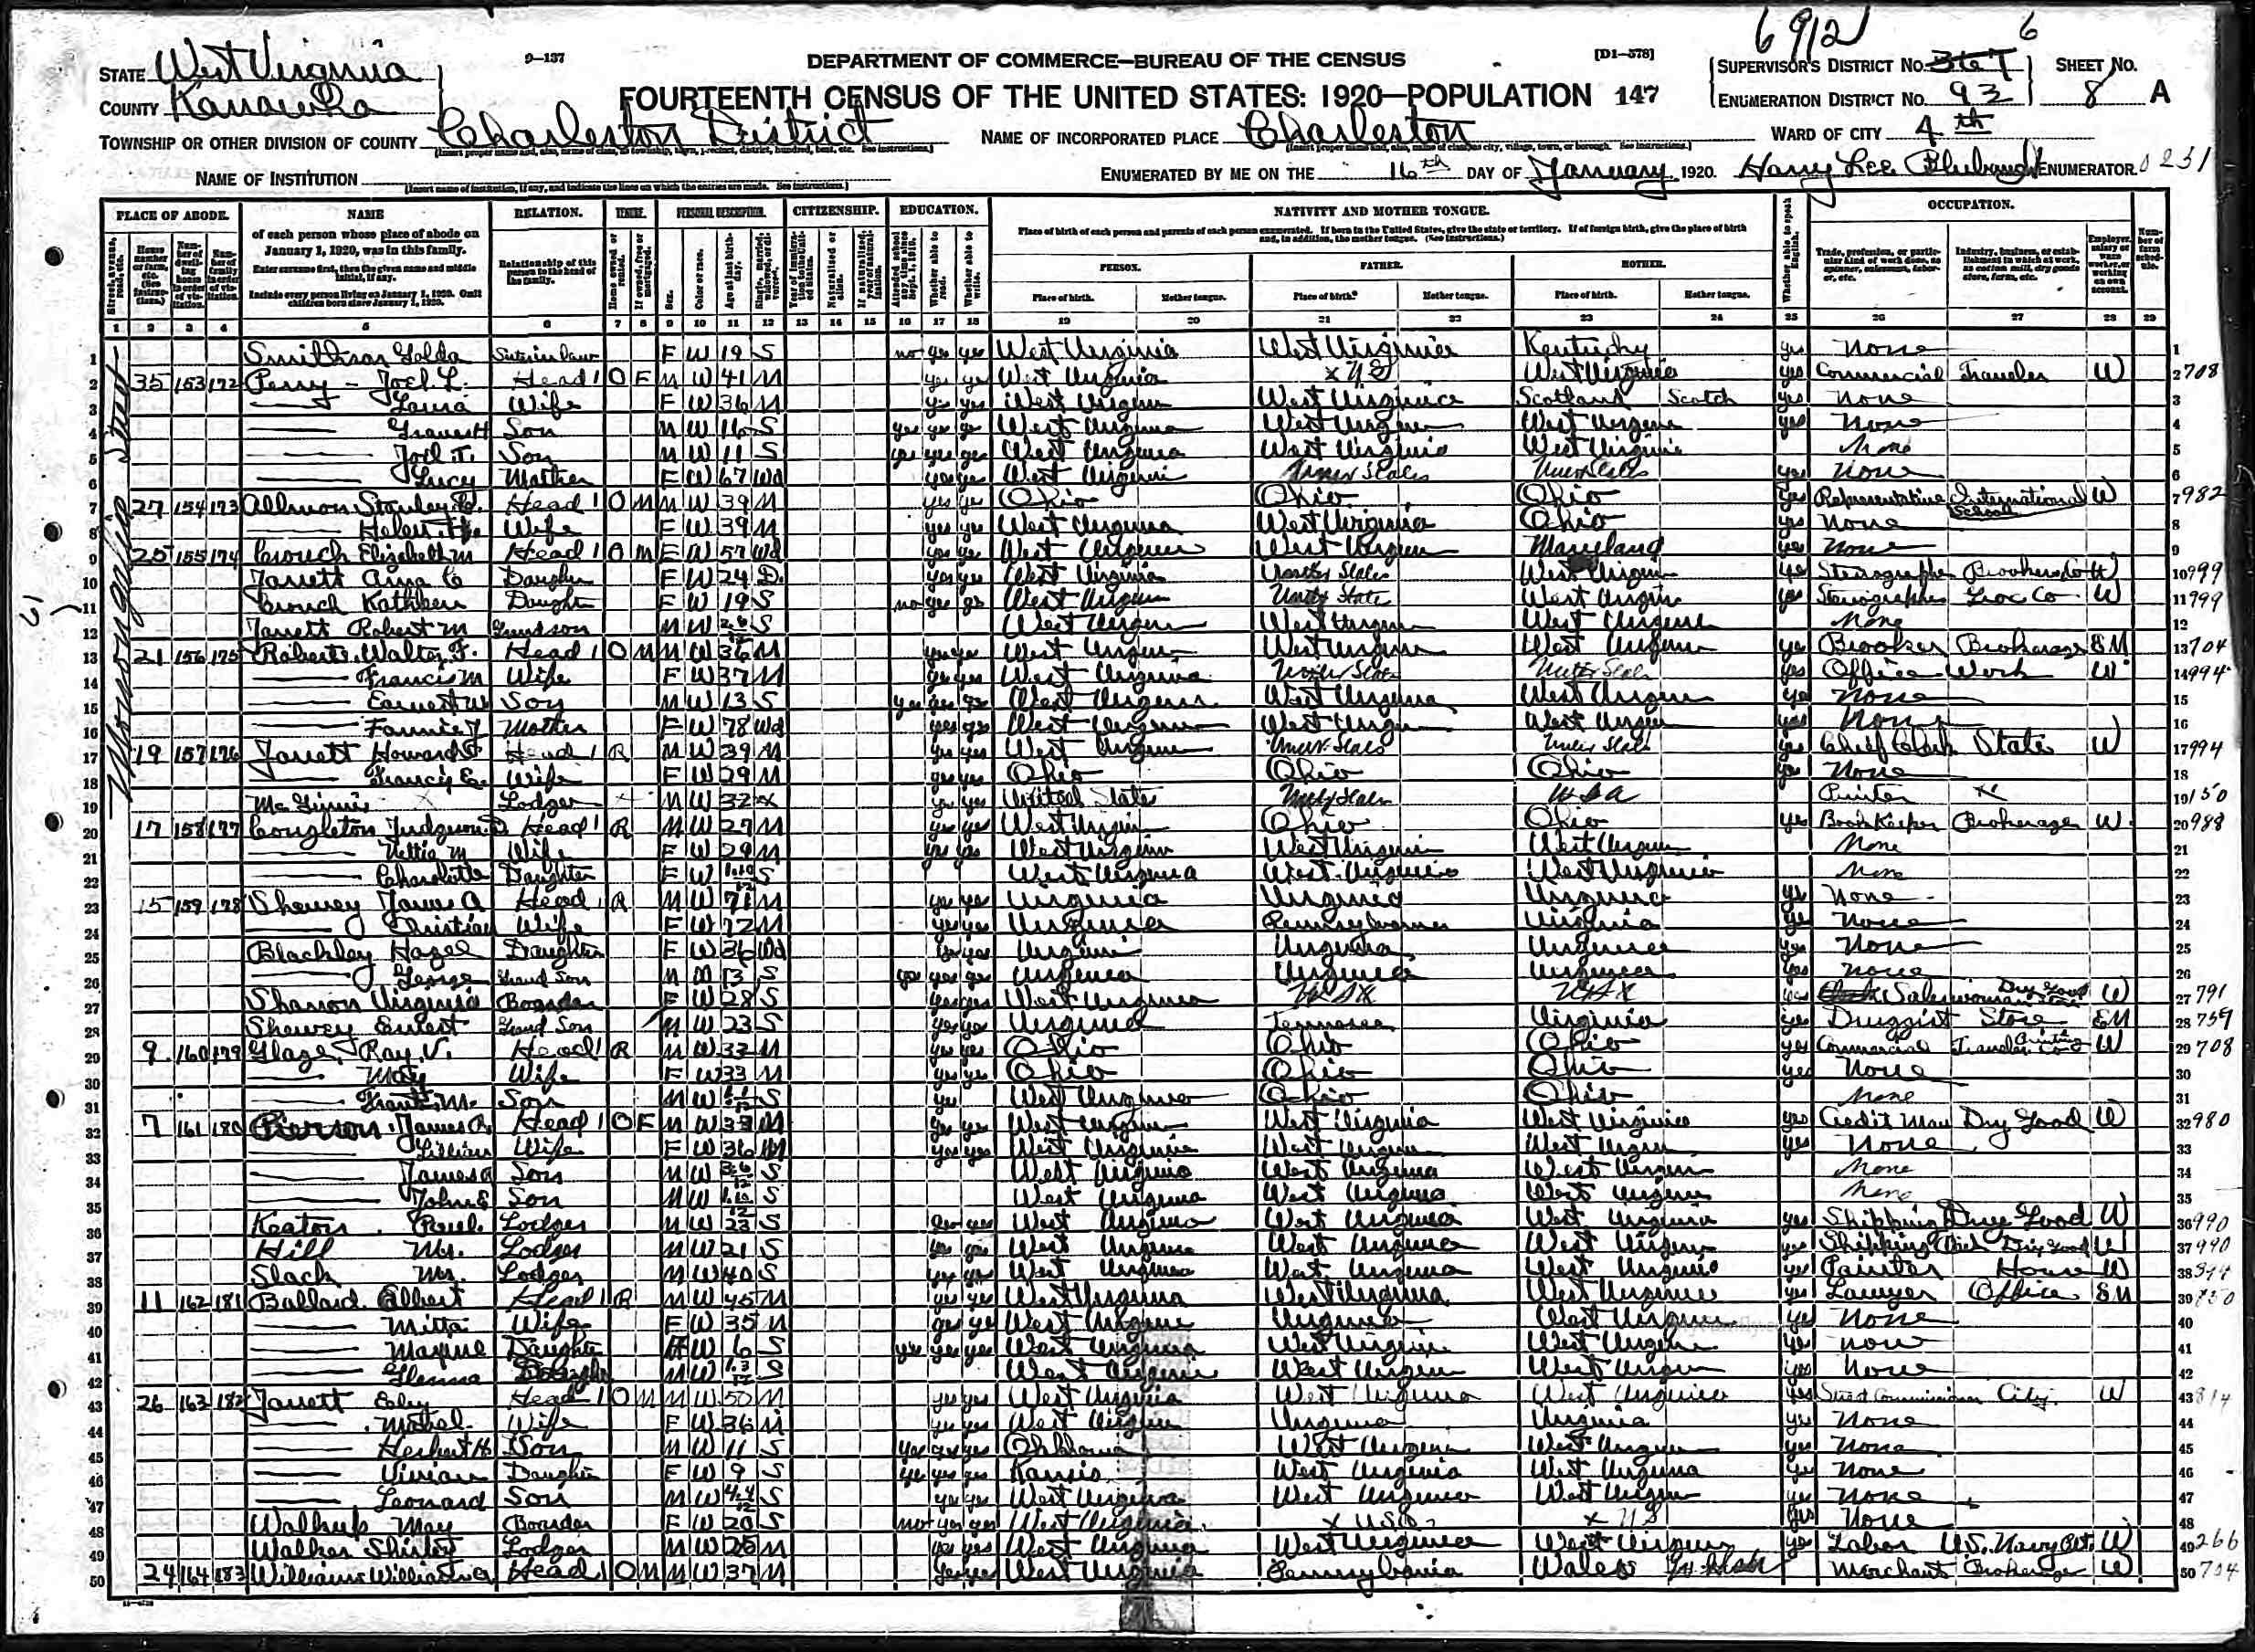 6912 6
9—137 DEPARTMENT OF COMMERCE—BUREAU OF THE CENSUS [D1-578]
STATE West Virginia
COUNTY Kanawha
FOURTEENTH CENSUS OF THE UNITED STATES: 1920—POPULATION 147
SUPERVISOR'S DISTRICT No. SHEET No.
ENUMERATION DISTRICT No. 93 8 A
TOWNSHIP OR OTHER DIVISION OF COUNTY Charleston District NAME OF INCORPORATED PLACE Charleston WARD OF CITY 4th
NAME OF INSTITUTION ENUMERATED BY ME ON THE 16th DAY OF January, 1920. Harry Lee ENUMERATOR. 0231
PLACE OF ABODE. NAME RELATION. TENURE. PERSONAL DESCRIPTION. CITIZENSHIP. EDUCATION. NATIVITY AND MOTHER TONGUE. OCCUPATION.
of each person whose place of abode on January 1, 1920, was in this family.
Enter surname first, then the given name and middle initial, if any.
Include every person living on January 1, 1920. Omit children born since January 1, 1920.
Relationship of this person to the head of the family.
Place of birth of each person and parents of each person enumerated. If born in the United States, give the state or territory. If of foreign birth, give the place of birth and, in addition, the mother tongue. (See instructions.)
PERSON. FATHER. MOTHER.
Place of birth. Mother tongue. Place of birth. Mother tongue. Place of birth. Mother tongue.
1 2 3 4 5 6 7 8 9 10 11 12 13 14 15 16 17 18 19 20 21 22 23 24 25 26 27 28 29
Monongalia Street
1 Smithson Golda Sister in law F W 19 S no yes yes West Virginia West Virginia Kentucky yes None 1
2 35 153 172 Perry — Joel L. Head 1 O F M W 41 M yes yes West Virginia x US West Virginia yes Commercial Traveler W 2 708
3 Laura Wife F W 36 M yes yes West Virginia West Virginia Scotland Scotch yes None 3
4 Son M W 16 S yes yes yes West Virginia West Virginia West Virginia yes None 4
5 Joel T. Son M W 11 S yes yes yes West Virginia West Virginia West Virginia None 5
6 Lucy Mother F W 67 Wd yes yes West Virginia United States United States yes None 6
7 27 154 173 Allmon Stanley Head 1 O M M W 39 M yes yes Ohio Ohio Ohio yes Representative International School W 7 982
8 Helen Wife F W 39 M yes yes West Virginia West Virginia Ohio yes None 8
9 25 155 174 Crouch Elizabeth M Head 1 O M F W 57 Wd yes yes West Virginia West Virginia Maryland yes None 9
10 Jarrett Anna C Daughter F W 24 D. yes yes West Virginia United States West Virginia yes Stenographer W 10 999
11 Crouch Kathleen Daughter F W 19 S no yes yes West Virginia United State West Virginia yes Stenographer Groc Co W 11 999
12 Jarrett Robert M Grandson M W S West Virginia West Virginia West Virginia None 12
13 21 156 175 Roberts, Walter F. Head 1 O M M W 36 M yes yes West Virginia West Virginia West Virginia yes Brooker Brokerage EM 13 704
14 Francis M Wife F W 37 M yes yes West Virginia United State United State yes Office Work W 14 994
15 Earnest W Son M W 13 S yes yes yes West Virginia West Virginia West Virginia yes None 15
16 Fannie J Mother F W 78 Wd yes yes West Virginia West Virginia West Virginia yes None 16
17 19 157 176 Jarrett Howard Head 1 R M W 39 M yes yes West Virginia United States United States yes Chief Clerk State W 17 994
18 Francis E. Wife F W 29 M yes yes Ohio Ohio Ohio yes None 18
19 Mc Ginnis x Lodger M W 32 x yes yes United States United States USA Printer x 19 150
20 17 158 177 Congleton Judgson D Head 1 R M W 27 M yes yes West Virginia Ohio Ohio yes Book Keeper Brokerage W. 20 988
21 Nettie M Wife F W 29 M yes yes West Virginia West Virginia West Virginia None 21
22 Charolotte Daughter F W 1 10/12 S West Virginia West Virginia West Virginia None 22
23 15 159 178 Shewey James A Head 1 R M W 71 M yes yes Virginia Virginia Virginia yes None 23
24 Christian Wife F W 72 M yes yes Virginia Pennsylvania Virginia yes None 24
25 Blachley Hazel Daughter F W 36 Wd yes yes Virginia Virginia Virginia yes None 25
26 George Grand Son M 13 S yes yes yes Virginia Virginia Virginia yes None 26
27 Shannon Virginia Boarder F W 28 S yes yes West Virginia yes Saleswoman Dry Good Store W 27 791
28 Shewey Ernest Grand Son M W 23 S yes yes Virginia Tennessee Virginia yes Druggist Store EM 28 759
29 9 160 179 Glaze, Ray V. Head 1 R M W 33 M yes yes Ohio Ohio Ohio yes Commercial Traveler Printing Co W 29 708
30 May Wife F W 33 M yes yes Ohio Ohio Ohio yes None 30
31 Frank M. Son M W S yes West Virginia Ohio Ohio None 31
32 7 161 180 Pierson, James A. Head 1 O F M W M yes yes West Virginia West Virginia West Virginia yes Credit Man Dry Good W 32 980
33 Lillian Wife F W 36 M yes yes West Virginia West Virginia West Virginia yes None 33
34 James A Son M W 3 6/12 S West Virginia West Virginia West Virginia None 34
35 John E Son M W 1 10/12 S West Virginia West Virginia West Virginia None 35
36 Keaton Paul. Lodger M W 23 S yes yes West Virginia West Virginia West Virginia yes Shipping Dry Good W 36 990
37 Hill Mr. Lodger M W 21 S yes yes West Virginia West Virginia West Virginia yes Shipping Clerk Dry Good W 37 990
38 Slack Mr. Lodger M W 40 S yes yes West Virginia West Virginia West Virginia yes Painter House W 38
39 11 162 181 Ballard Albert Head 1 R M W 45 M yes yes West Virginia West Virginia West Virginia yes Lawyer Office EM 39
40 Mitta Wife F W 35 M yes yes West Virginia Virginia West Virginia yes None 40
41 Maxine Daughter F W 6 S yes yes yes West Virginia West Virginia West Virginia yes None 41
42 Glenna Daughter M W 1 3/12 S West Virginia West Virginia West Virginia yes None 42
43 26 163 182 Jarrett Eley Head 1 O M M W 50 M yes yes West Virginia West Virginia West Virginia yes Street Commissioner City W 43 814
44 Mabel Wife F W 36 M yes yes West Virginia Virginia Virginia yes None 44
45 Herbert H. Son M W 11 S yes yes yes Oklahoma West Virginia West Virginia yes None 45
46 Vivian Daughter F W 9 S yes yes yes Kansis West Virginia West Virginia yes None 46
47 Leonard Son M W 4 4/12 S yes yes West Virginia West Virginia West Virginia yes None 47
48 Walkup May Boarder F W 20 S no yes yes West Virginia x USA x US yes None 48
49 Walker Lodger M W 25 M yes yes West Virginia West Virginia West Virginia yes Labor U.S. Navy W 49 266
50 24 164 183 Williams William Head 1 O M M W 37 M yes yes West Virginia Pennsylvania Wales Merchant Brokerage W 50 704